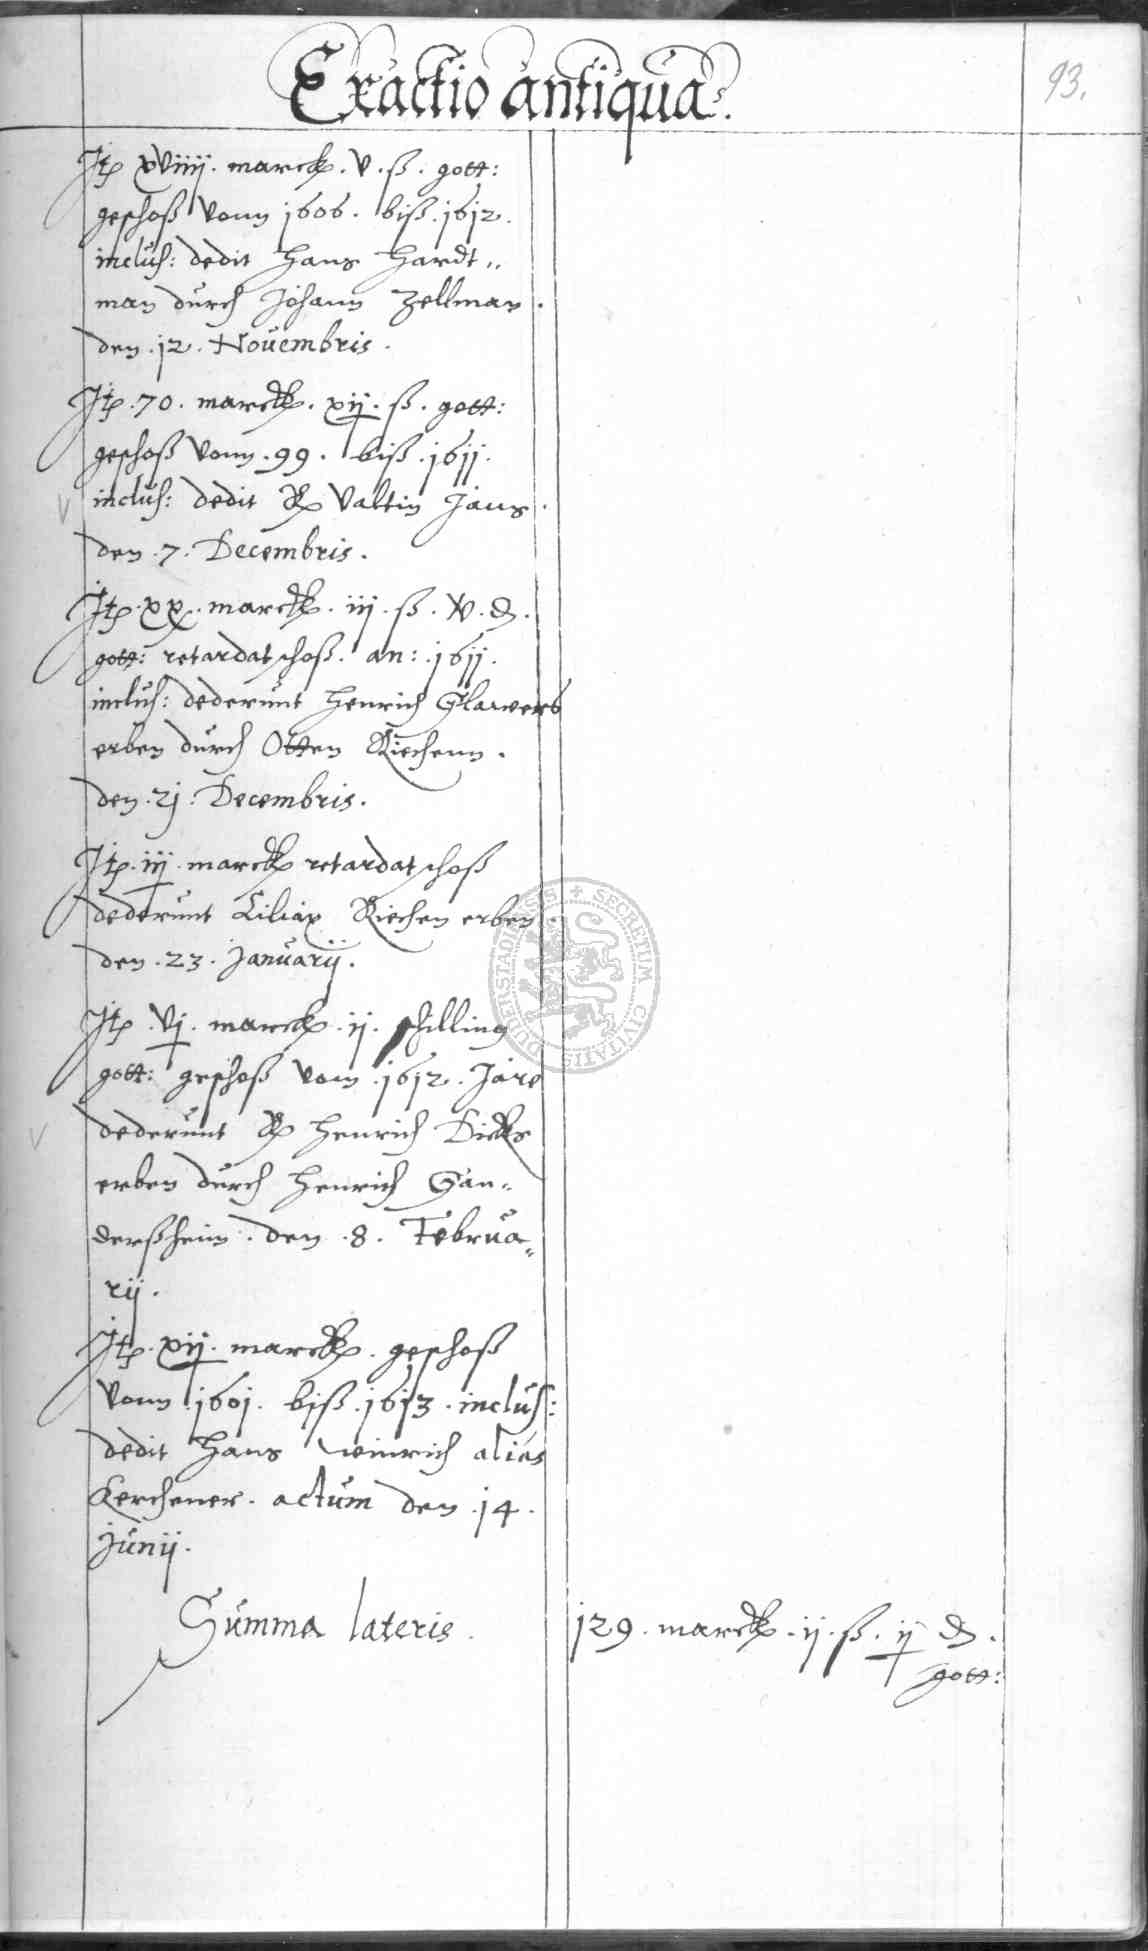 Exactio antiqua.
93.
Itē xviiij. marck. v. ß. gott:
geschoß vonn 1606. biß. 1612.
inclus: dedit Hans Hardt„
man durch Johann Zellman.
den .12. Novembris.
Itē .70. marck. xij. ß. gott:
geschoß vonn .99. biß .1611.
inclus: dedit Valtin Jans.
den .7. Decembris.
Itē. xx. marck. iij. ß. v. d.
gott: retardat schoß. an: .1611.
inclus: dederunt Henrich
erben durch Otten Riechenn.
den .21. Decembris.
Itē. iij. marck retardat schoß
dederunt Ciliax Riechen erben.
den .23. Januarij.
Itē .vj. marck. ij. schilling
gott: geschoß vom .1612. Jare
dederunt Henrich Dicks
erben durch Henrich Gan„
derßheim. den .8. Februa„
rij.
Itē. xij. marck. geschoß
vonn .1601. biß .1613. inclus:
dedit Hans Weinrich alias
Kerchener. actum den .14.
Junij.
Summa lateris.
129. marck. ij. ß. ij d.
gott:
SECRETUM CIVITATIS DUDERSTADIENSIS